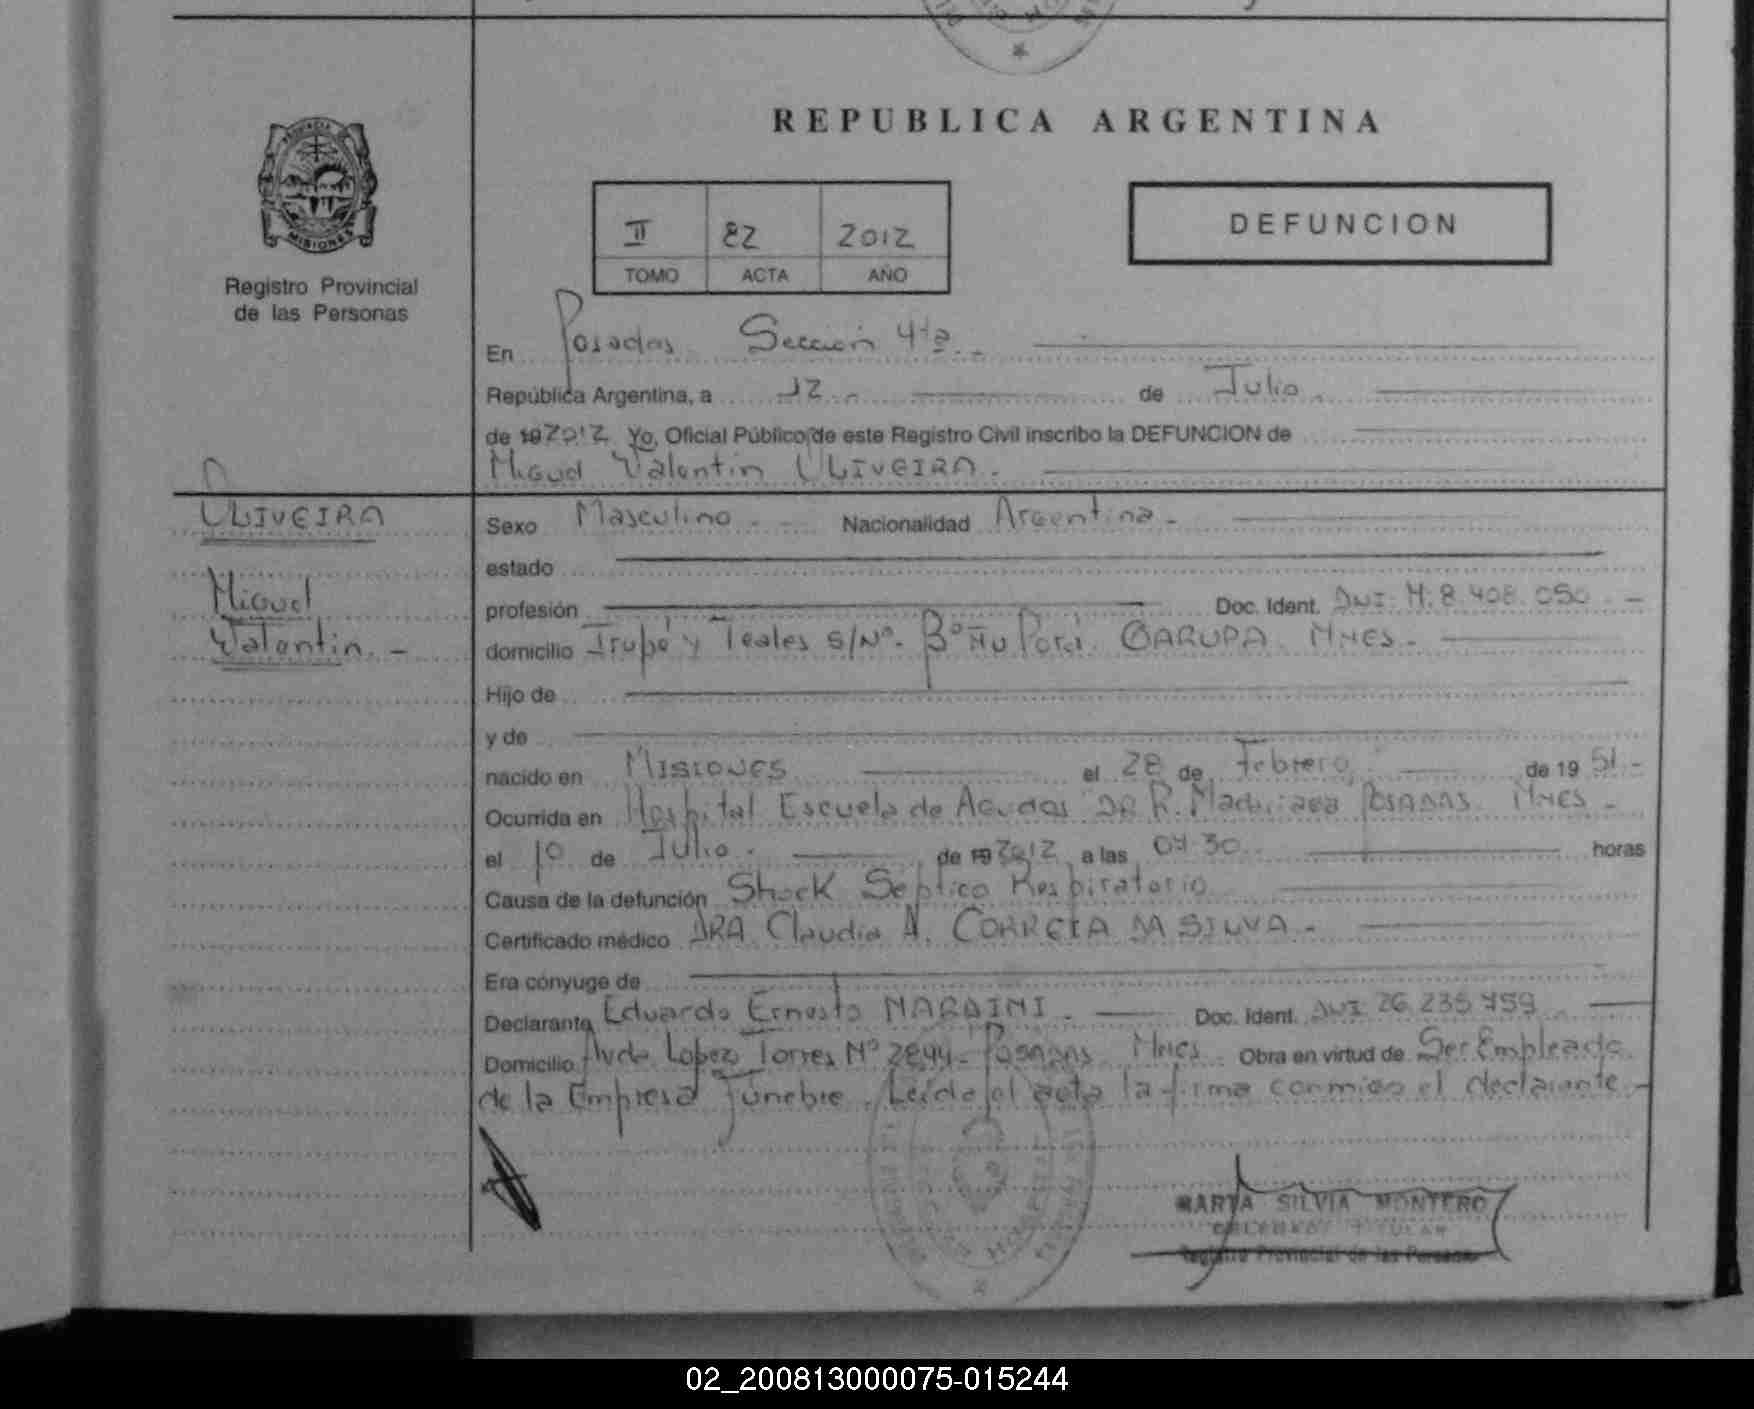 REPUBLICA ARGENTINA
PROVINCIA DE
MISIONES
Registro Provincial
de las Personas
II 82 2012
TOMO ACTA AÑO
DEFUNCION
En Posadas Sección 4ta.-
República Argentina, a 12.- de Julio.
de 19 2012 Yo, Oficial Público de este Registro Civil inscribo la DEFUNCION de
Miguel Valentin OLIVEIRA.
OLIVEIRA
Miguel
Valentin.-
Sexo Masculino.- Nacionalidad Argentina.-
estado
profesión Doc. Ident. DNI. M. 8.408.050.-
domicilio Irupé y Teales S/Nº. Bº Ñu Porá. GARUPA. MNES.-
Hijo de
y de
nacido en MISIONES el 28 de Febrero de 19 51.-
Ocurrida en Hospital Escuela de Agudos DR R. Madariaga POSADAS. MNES.-
el 10 de Julio. de 19 2012 a las 04 30 horas
Causa de la defunción Shock Septico Respiratorio
Certificado médico DRA. Claudia A. CORREIA DA SILVA.-
Era cónyuge de
Declarante Eduardo Ernesto Doc. Ident. DNI 26.235.759
Domicilio Avda Lopez Torres Nº 2844- POSADAS. MNES. Obra en virtud de Ser Empleado
de la Empresa Fúnebre. Leída el acta la firma conmigo el declarante.-
MARTA SILVIA MONTERO
Registro Provincial de las Personas
02_200813000075-015244